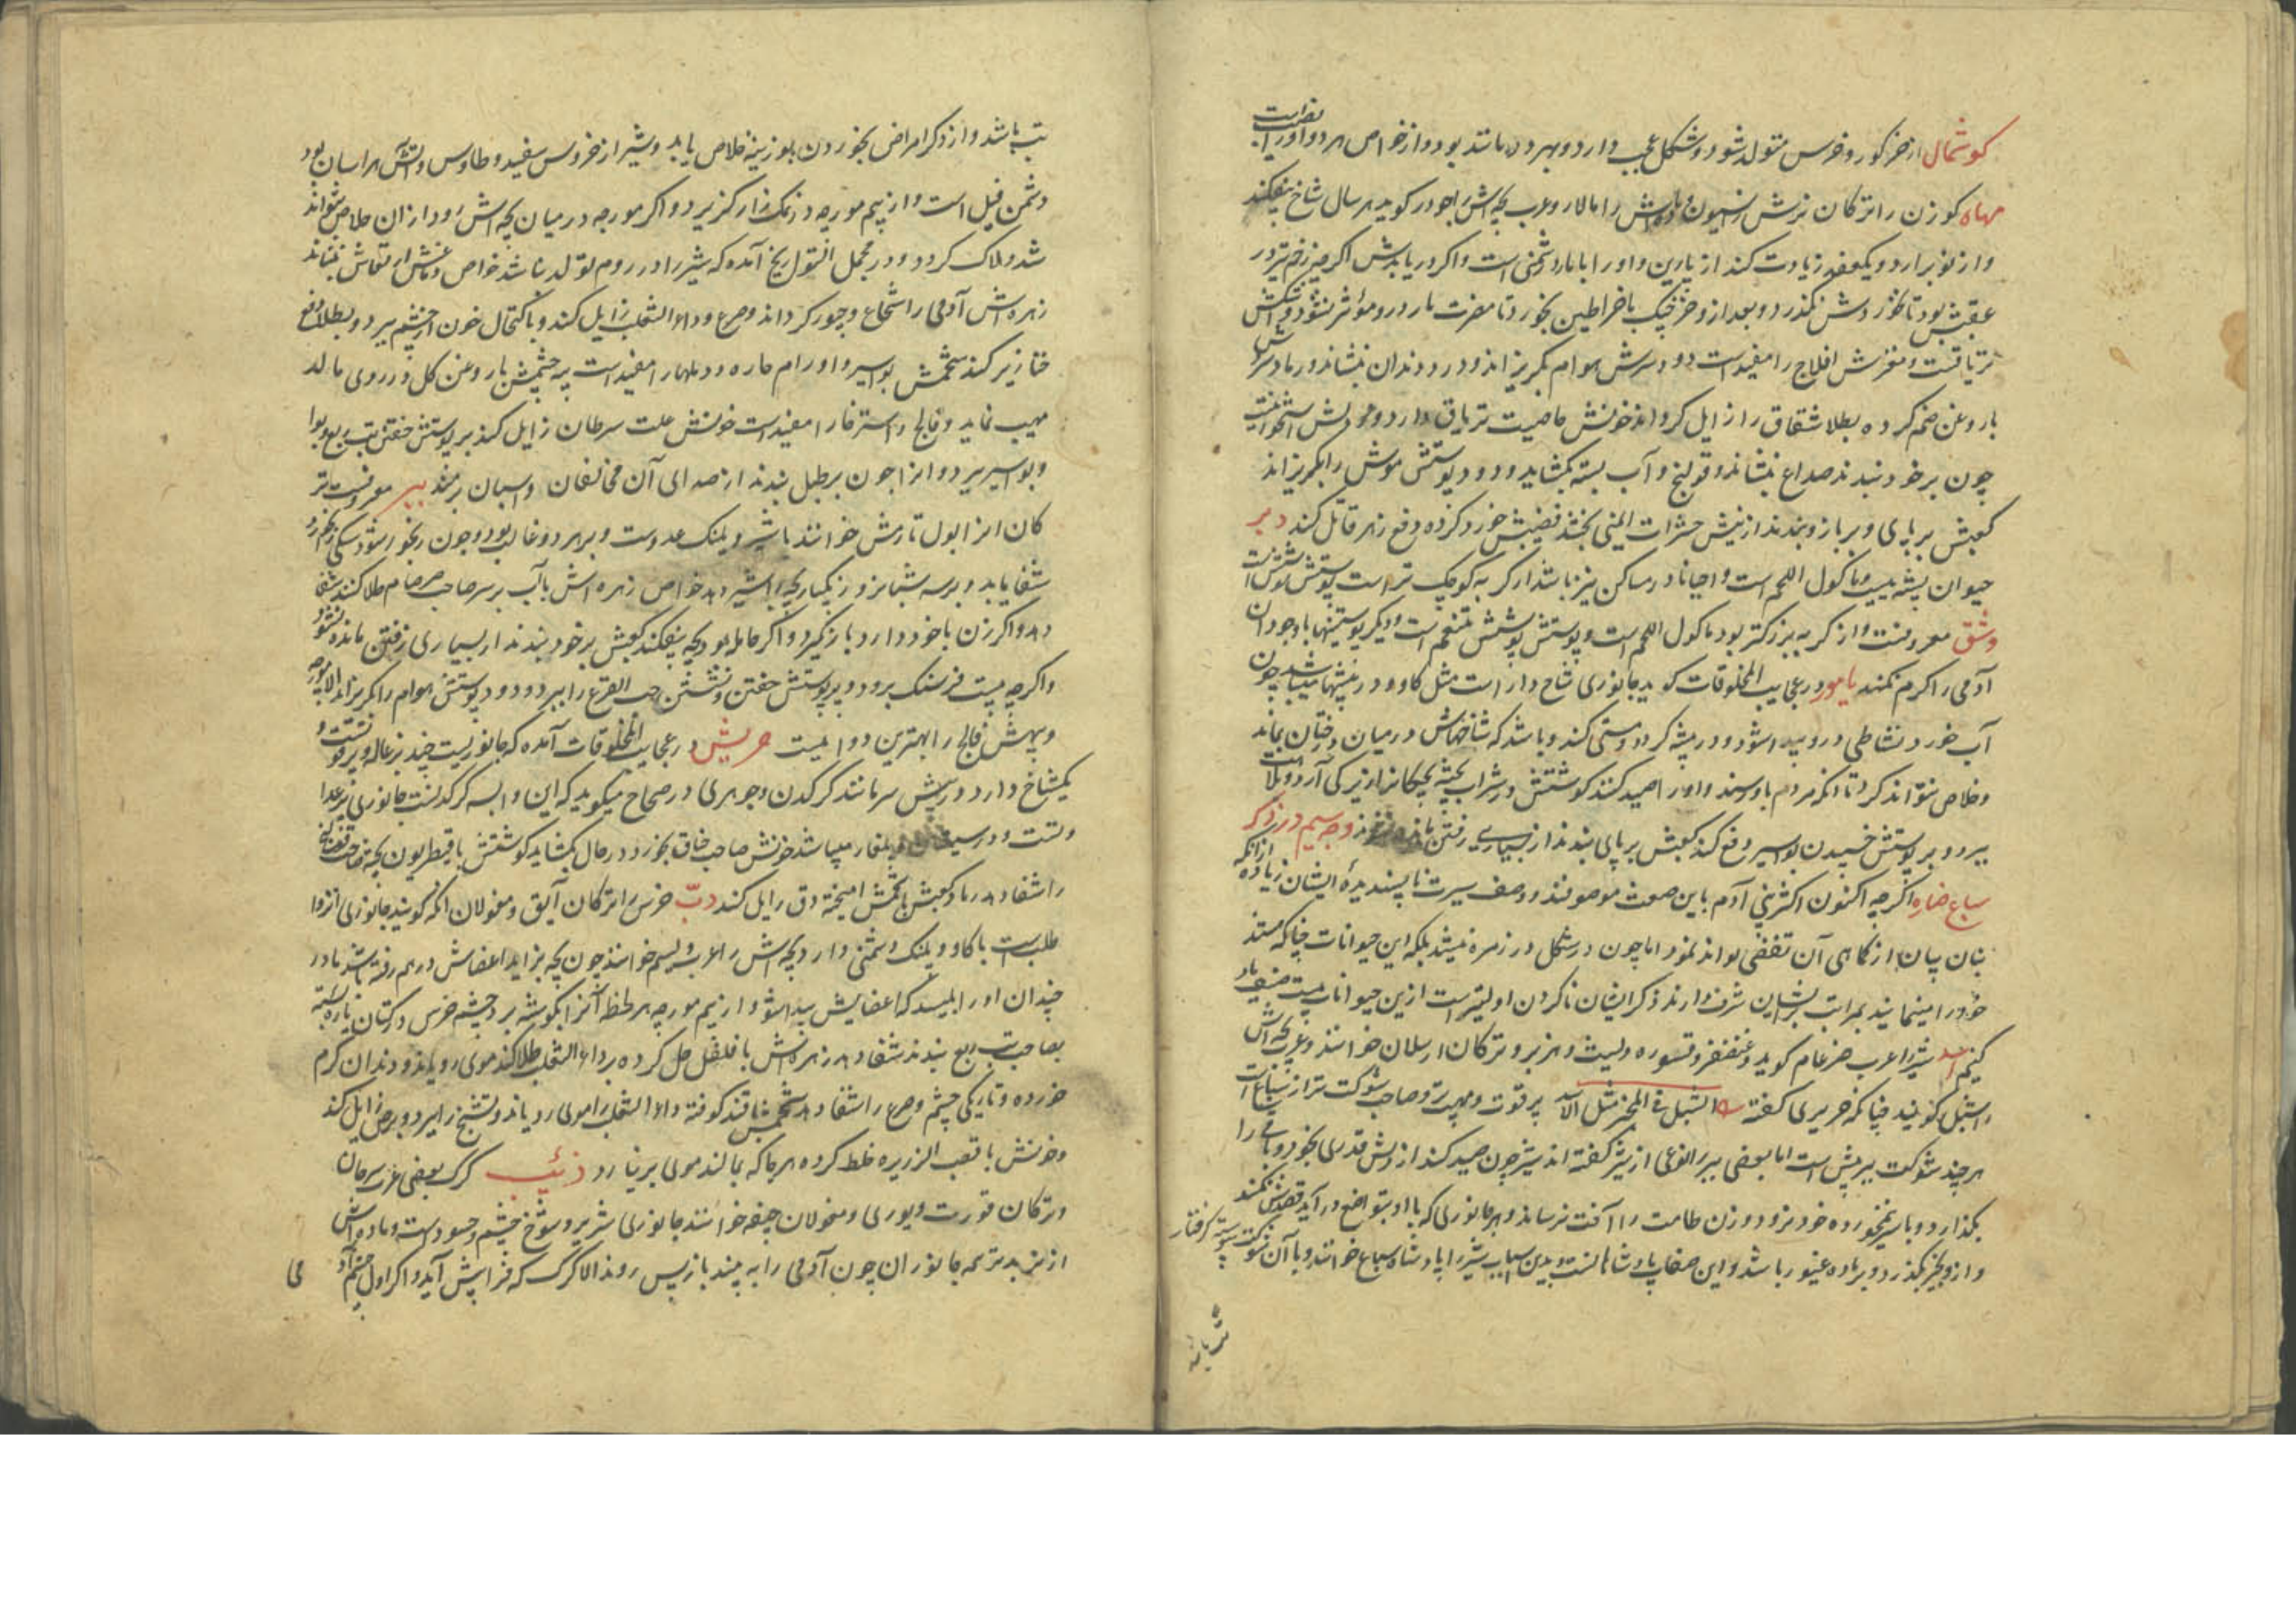 کوشمال از خر کور و خرس متولد شود و شکل عجب دارد و بهر دو مانند بود و از خواص هر دو او را نصیب است
مهاه کوزن را ترکان نرش را سیون و ماده‌اش را مارال و عرب بچه‌اش را جودر کوید هر سال شاخ بیفکند
و از نو برآرد و یکعقد زیادت کند از پارین و او را با مار دشمنی است و اکر دریابدش اکرچه زخم تیر در
عقبش بود تا نخوردش نکذرد و بعد از و خرچنک با خراطین بخورد تا مضرت مار درو مؤثر نشود
تریاقست و مغزش افلاج را مفید است دود سرش هوام بکریزاند و درد دندان بنشاند
با روغن ضم کرده بطلا شقاق را زایل کرداند خونش خاصیت تریاق دارد
چون بر خود بندند صداع بنشاند و قولنج و آب بسته بکشاید و دود پوستش موش را بکریزاند
کعبش بر پای و بر بازو بندند از نیش حشرات ایمنی بخشد قضیبش خورد کرده دفع زهر قاتل کند دبر
حیوان بیشه ییست و ماکول اللحم است و احیانا در مساکن نیز باشد از کربه کوچک‌تر است
وشق معروفست و از کربه بزرکتر بود ماکول اللحم است و پوستش پوشش متنعم است و دیکر پوستینها با وجود آن
آدمی را کرم نکند یامور در عجایب المخلوقات کوید جانوری شاخ دار است مثل کاو و در بیشها میباشد چون
آب خورد نشاطی درو پیدا شود و در بیشه کردد و مستی کند و باشد که شاخهاش در میان درختان بماند
و خلاص نتواند کرد تا آنکه مردم باو رسند و او را صید کنند کوشتش در شراب پخته بچکانرا زیرکی آرد
ببرد و بر پوستش خسپیدن بواسیر دفع کند کعبش بر پای بندند از بسیاری رفتن مانده نشوند وجه سیم در ذکر
سباع ضاره اکرچه اکنون اکثر بنی آدم باین صفت موصوفند و وصف سیرت ناپسندیدهٔ ایشان زیاده از آنکه
بنان بیان از کماهی آن تفصی تواند نمود اما چون در شکل در زمره نیستند بلکه این حیوانات چنانکه هستند
خود را مینمایند بمراتب بریشان شرف دارند ذکر ایشان ناکردن اولیتر است ازین حیوانات
کنیم اسد شیر را عرب ضرغام کوید و غضنفر و قسوره و لیث و هزبر و ترکان ارسلان خوانند و عرب بچه‌اش
را شبل کویند چنانکه حریری کفته الشبل فی المخبر مثل الاسد پر قوت و مهیب‌تر و صاحب شوکت‌تر از سباع است
هر چند شوکت ببر بیش است اما بعضی ببر را نوعی از شیر کفته‌اند شیر چون صید کند از دلش قدری بخورد و باقی را
بکذارد و با سر نیمخورده خود نرود و زن طامث را آفت نرساند و هر جانوری که با او بتواضع درآید قصدش نکند
و از و بخیر بکذرد و بر ماده غیور باشد و این صفات پادشاهانست و بدین سبب شیر را پادشاه سباع خوانند و با آن شوکت پیوسته کرفتار
تب باشد و از دکر امراض بخوردن بوزینه خلاص یابد و شیر از خروس سفید و طاوس و آتش هراسان بود
دشمن فیل است و از بیم مورچه در نمک‌زار کزیرد و اکر مورچه در میان بچه‌اش رود از آن خلاص نتواند
شد و هلاک کردد و در مجمل التواریخ آمده که شیر را در روم تولد نباشد خواص دماغش ارتعاش بنشاند
زهره‌اش آدمی را شجاع و جسور کرداند و صرع و داء الثعلب زایل کند و باکتحال خون از چشم ببرد و بطلا دفع
خنازیر کند شحمش بواسیر و اورام حاره و دملها را مفید است پیه چشمش با روغن کل در روی مالد
مهیب نماید و فالج و استرخا را مفید است خونش علت سرطان زایل کند بر پوستش خفتن تب ربع
و بواسیر ببرد و از آنرا چون بر طبل بندند از صدای آن مخالفان و اسپان برمند ببر معروفست
کان آنرا ابول تارش خوانند با شیر و پلنک عدوست و بر هر دو غالب بود و چون رنجور شود سکی بخورد
شفا یابد و برسه شبانروز یکبار بچه را شیر دهد خواص زهره‌اش بآب بر سر صاحب سرسام طلا کنند شفا
دهد و اکر زن با خود دارد بار نکیرد و اکر حامله بود بچه بیفکند کعبش بر خود بندند از بسیاری رفتن مانده نشود
و اکرچه بیست فرسنک برود و بر پوستش خفتن و نشستن حب القرع را ببرد و دود پوستش هوام را بکریزاند
و پیهش فالج را بهترین دوائیست حریش در عجایب المخلوقات آمده که جانوریست چند بزغاله و پر قوتست و
یکشاخ دارد در پیش سر مانند کرکدن و جوهری در صحاح میکوید که این دابه کرکدنست جانوری
و در سیستان و بلغار میباشد خونش صاحب خناق بخورد در حال بکشاید کوشتش با قیطریون
را شفا دهد رماد کعبش با شحمش آمیخته دق زایل کند دبّ خرس را ترکان آیق و مغولان اتکه کویند جانوری انزوا
طلب است با کاو و پلنک دشمنی دارد بچه‌اش را عرب دیسم خوانند چون بچه بزاید اعضاش در هم رفته باشد مادر
چندان او را بلیسد که اعضایش پیدا شود و از بیم مورچه هر لحظه آنرا بکوشه برد چشم خرس در کتان پاره بسته
بصاحب تب ربع بندند شفا دهد زهره‌اش با فلفل حل کرده بر داء الثعلب طلا کنند موی رویاند و دندان کرم
خورده و تاریکی چشم و صرع را شفا دهد شحمش داء الثعلب را موی رویاند و تشنج را ببرد و برص زایل کند
و خونش با قصب الزریره خلط کرده هر جا که بمالند موی بر نیارد ذئب کرک بعضی عرب سرحان
و ترکان قورت و بوری و مغولان چینه خوانند جانوری شریر و شوخ چشم و حسود است و ماده‌اش
از نر بدتر همه جانوران چون آدمی را به بینند باز پس روند الا کرک که فرا پیش آید و اکر اول چشم آد
می